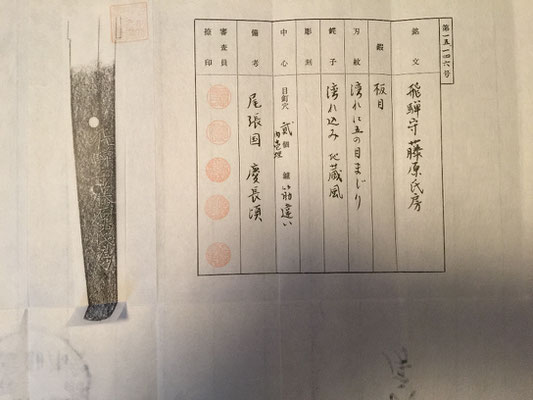 第一五一四六号
銘文 飛騨守藤原氏房
鍛 板目
刃紋 湾れに五の目まじり
鋩子 湾れ込み地蔵風
彫刻
中心 目釘穴 貳個 内壱埋 鑢 筋違い
備考 尾張国 慶長頃
審査員捺印